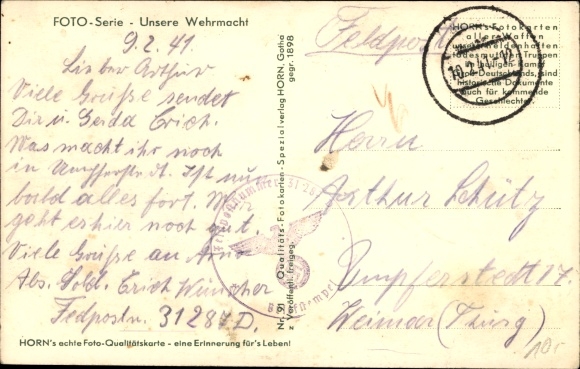 FOTO-Serie - Unsere Wehrmacht
9.2.41.
Lieber Arthur
Viele Grüße sendet
Dir u. Gerda Erich.
Was macht ihr noch
in Umpferstedt. Ist nun
bald alles fort. Mir
geht es hier noch gut.
Viele Grüße an
Abs. Sold. Erich
Feldpostn. 31287 D.
HORN's echte Foto-Qualitätskarte - eine Erinnerung für's Leben!
Nr. 91 Qualitäts-Fotokarten-Spezialverlag HORN, Gotha
z. Veröffentl. freigeg. gegr. 1898
Feldpost
HORN's Fotokarten
aller Waffen
unseres heldenhaften
todesmutigen Truppen
im heiligen Kampf
um Groß-Deutschland, sind
historische Dokumente
auch für kommende
Geschlechter
Herrn
Arthur Schütz
Umpferstedt 17.
Weimar (Thürg)
10.-